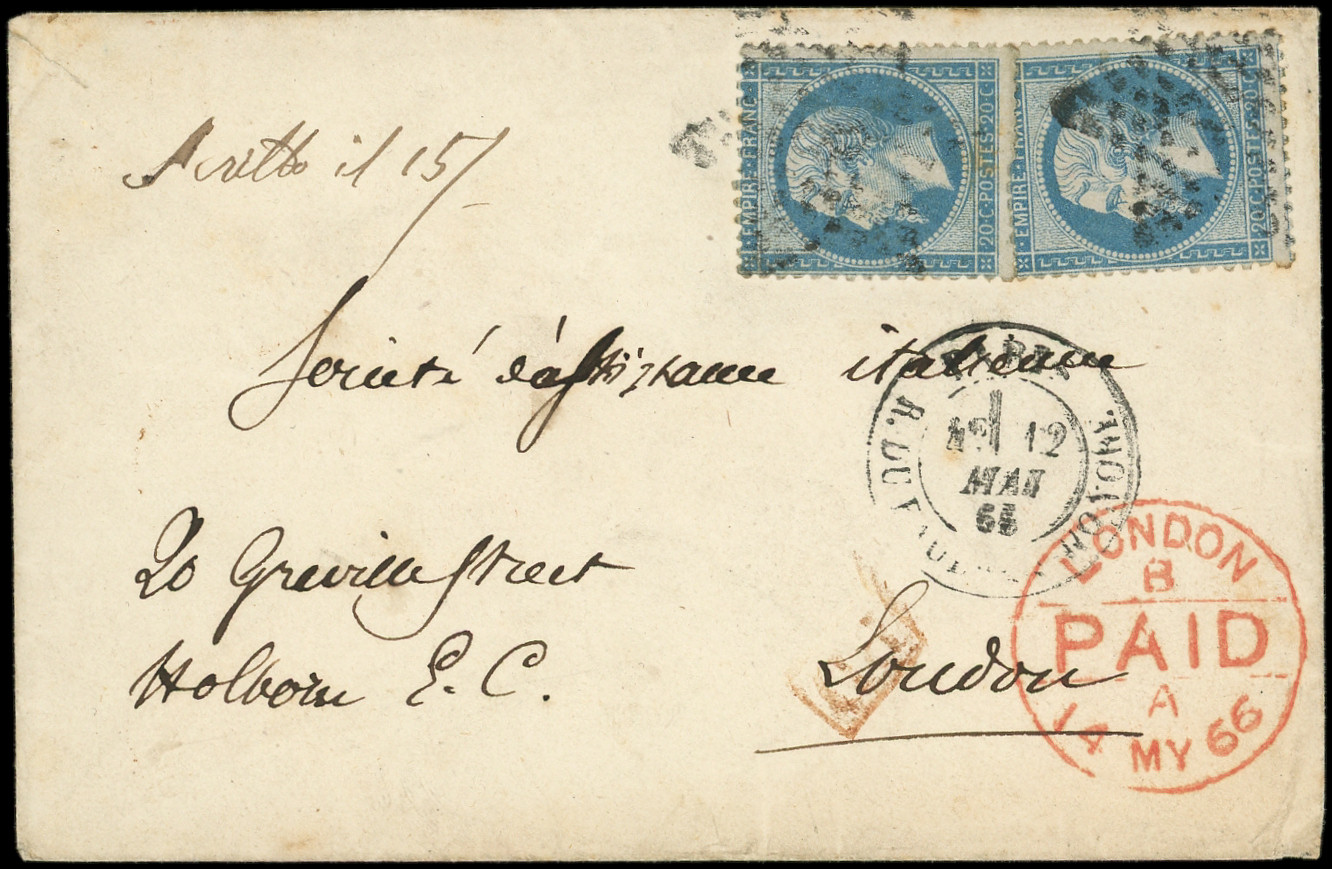 EMPIRE FRANC
20·C·POSTES·20·C
EMPIRE·FRANC
20·C·POSTES·20·C
Scritto il 15/
Société d'assistance italienne
PARIS
12
MAI
66
R. DU
20 Greville Street
Holborn E. C.
London
LONDON
B
PAID
A
14 MY 66